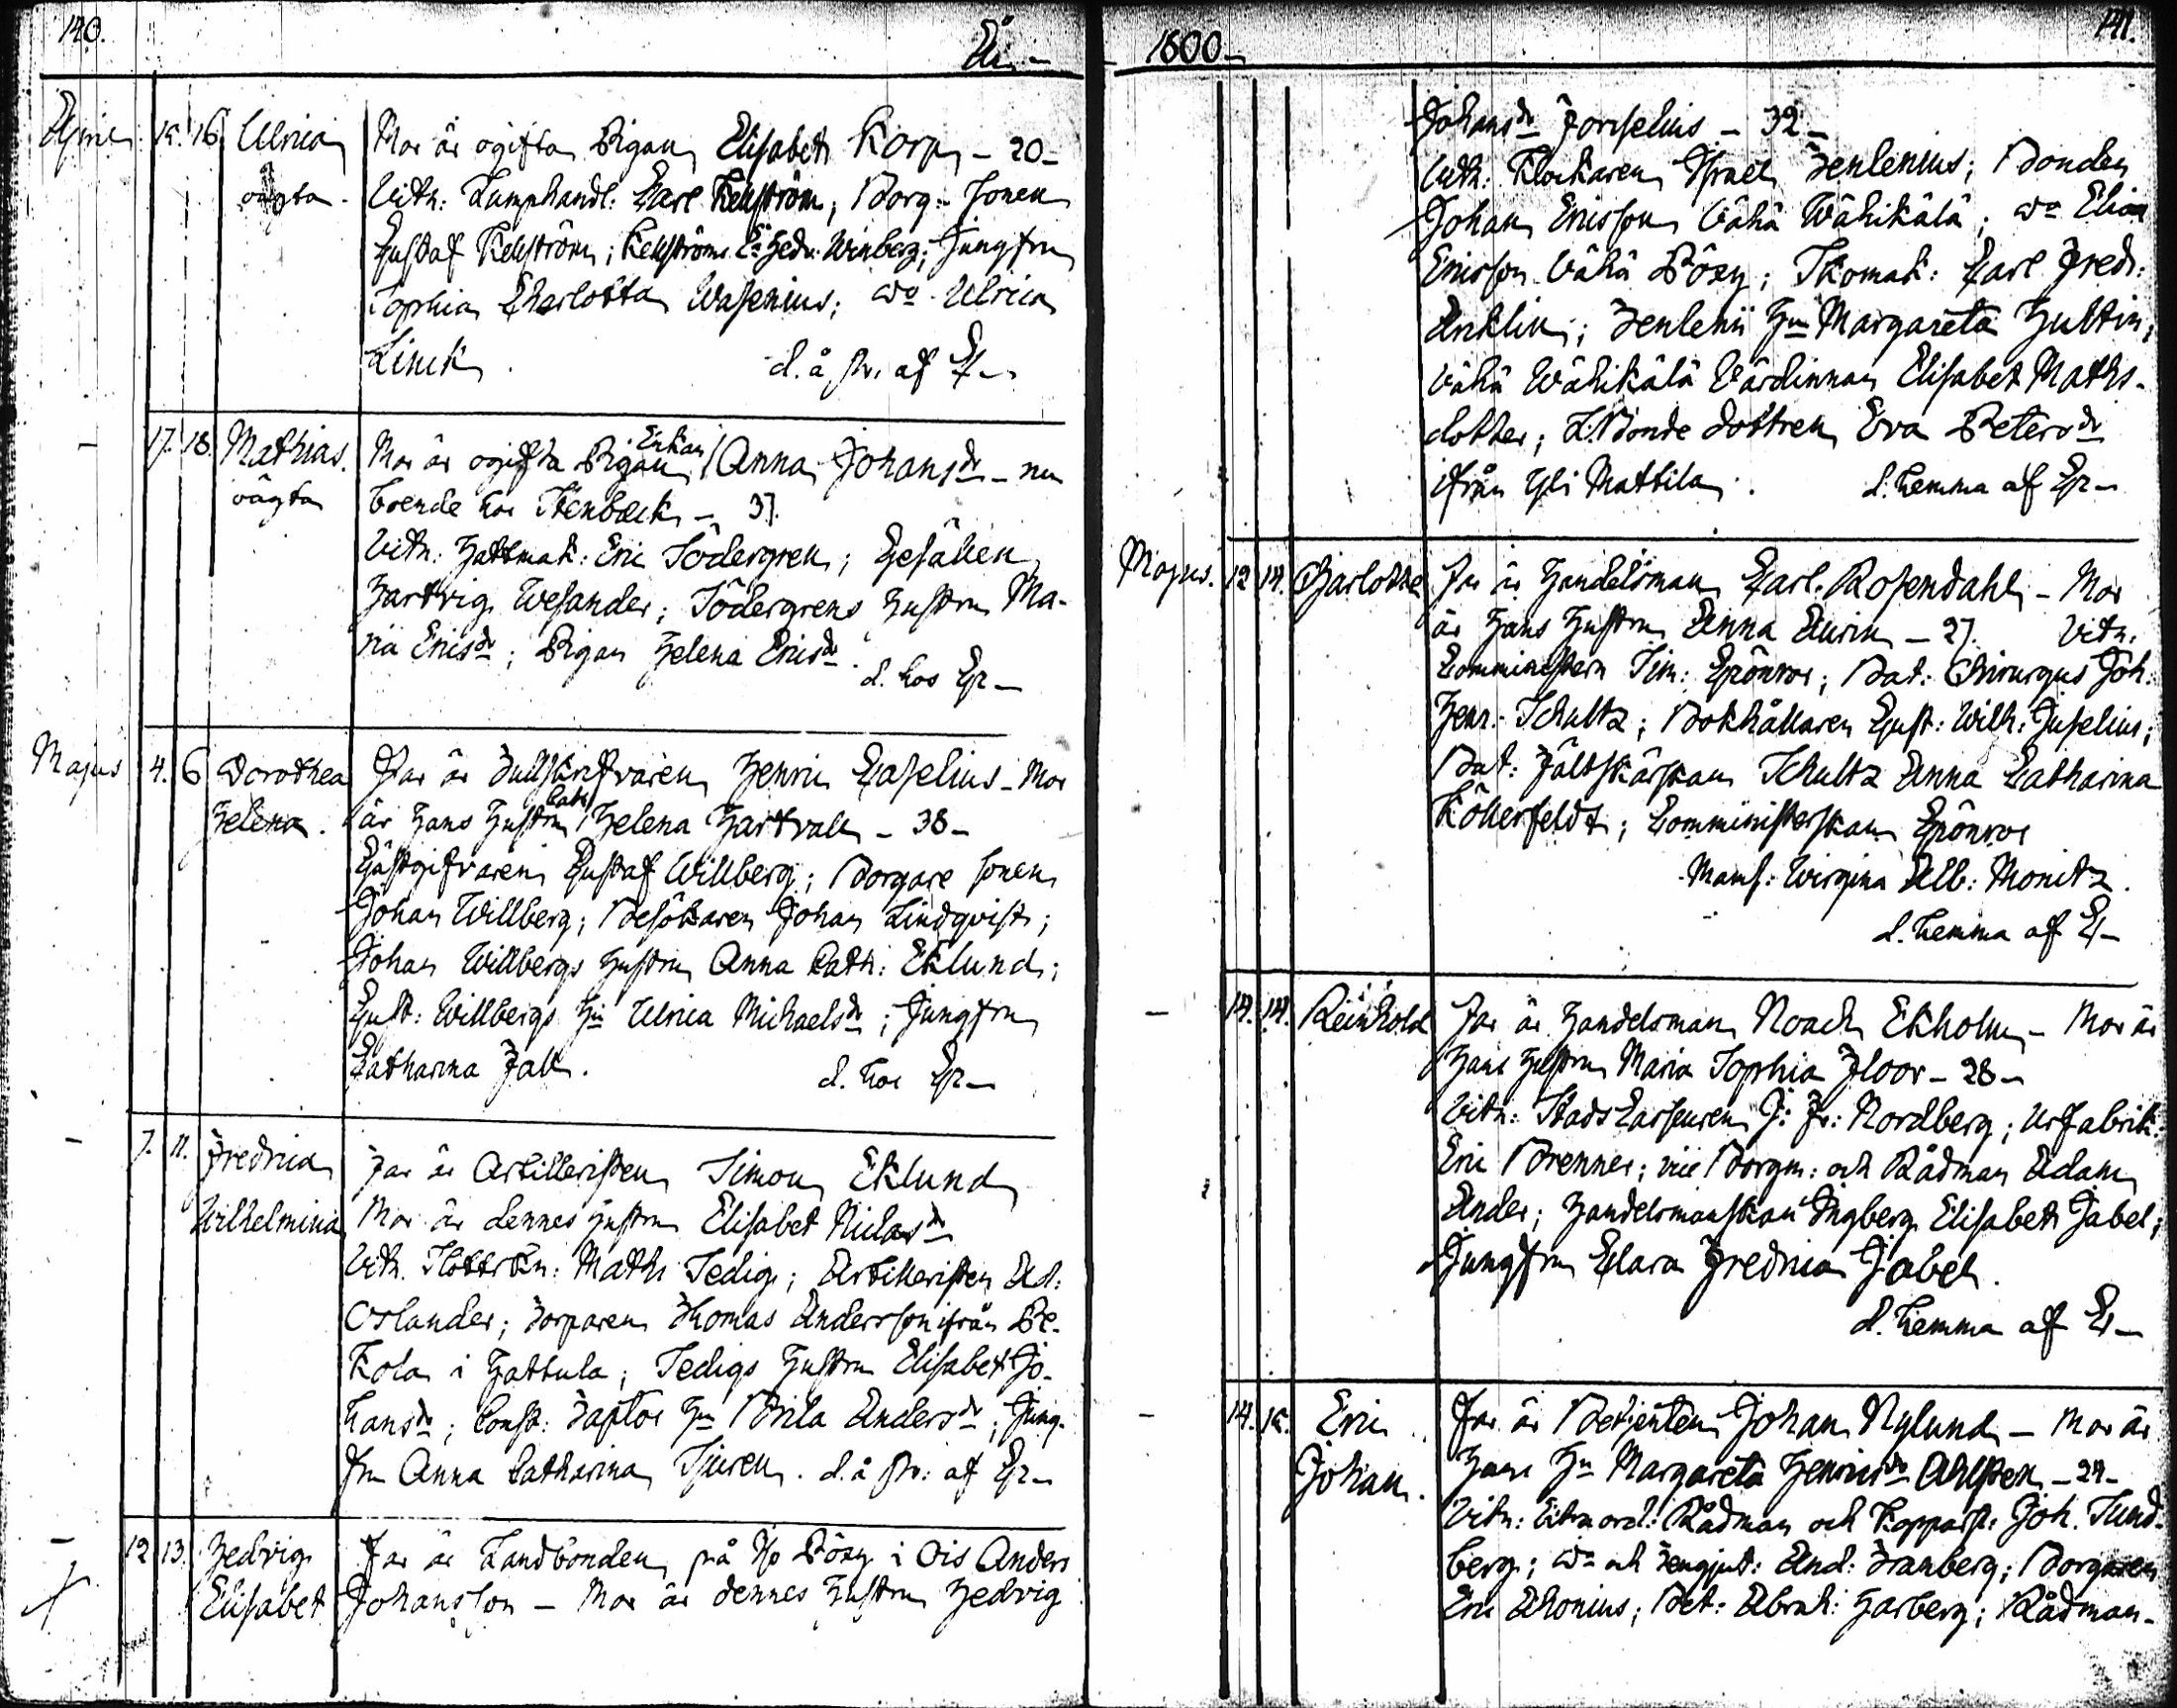 140.
År
April 15. 16 Ulrica Mor är ogifta Pigan Elisabet Korp - 20 -
oägta. Vitn: Lumphandl: Carl Kellström; Borg: Sonen
Gustaf Kellström; Kellströms Hedv: Winberg; Jungfru
Sophia Charlotta Wasenius; do Ulrica
Linck. d. å st. af
- 17. 18. Mathias. Mor är ogifta Pigan Enkan Anna Johansdr - nu
oägta boende hos Stenbeck - 37
Vitn: Hattmak: Eric Södergren; Gesällen
Hartvig Wesander; Södergrens hustru Ma-
ria Ericsdr; Pigan Helena Ericsdr.
d. hos Gr -
Majus 4. 6 Dorothea Far är Tullskrifvaren Henric Caselius - Mor
Helena. är hans hustru Cath Helena Hartvall - 38 -
Gästgifvaren Gustaf Willberg; Borgare sonen
Johan Willberg; Besökaren Johan Lindqvist;
Johan Willbergs hustru Anna Cath: Eklund;
Gust: Willbergs hu Ulrica Michaelsdr; Jungfru
Catharina Fall. d. hos Gr -
- 7. 11. Fredrica Far är Artilleristen Simon Eklund
Wilhelmina Mor är dennes hustru Elisabet Niclasdr
Vitn. Maths Sedig; Artilleristen Ad:
Oslander; Torparen Thomas Andersson ifrån Pe-
kola i Hattula; Sedigs hustru Elisabet Jo-
hansdr; Const: hu Brita Andersdr; Jung-
fru Anna Catharina Siuren. d. å st: af Gr -
- 12 13. Hedvig Far är Landbonden på Yso Pöxy i Ois Anders
Elisabet Johansson - Mor är dennes hustru Hedvig
1800 -
141.
Johansdr Forselius - 32 -
Vitn: Klockaren Israel Zenlenius; Bonden
Johan Ericsson Vähä Wähikälä; do Elias
Ericsson Vähä Pöxy; Skomak: Carl Fredr:
Anklin; Zenlenii hu Margareta Hultin;
Vähä Wähikälä Värdinnan Elisabet Maths-
dotter; L. Bonde dottren Eva Petersdr
ifrån Yli Mattila. d. hemma af Gr -
Majus. 12 14. Charlotta Far är Handelsman Carl Rosendahl - Mor
är hans hustru Anna Aurin - 27. Vitn.
Comministern Sim: Grönroos; Bat: Chirurgus Joh:
Henr: Schultz; Bokhållaren Gust: Wilh: Juselius;
Bat: Fältskärskan Schultz Anna Catharina
Köllerfeldt; Comministerskan Grönroos
Mams: Virgina Alb: Monitz.
d. hemma af
- 14. 14. Reinhold Far är Handelsman Noach Ekholm - Mor är
hans hustru Maria Sophia Floor - 28 -
Vitn: Stads Cassören J: Fr: Nordberg; Urfabrik:
Eric Brenner; vice Borgm: och Rådman Adam
Ander; Handelsmanskan Ingberg Elisabet Jabel;
Jungfru Clara Fredrica Jabel.
d. hemma af
- 14. 15. Eric Far är Betjenten Johan Nylund - Mor är
Johan. hans hu Margareta Henricsdr Ahlsten - 24 -
Vitn: Rådman och Kopparsl: Joh. Sund-
berg; do och Tenngjut: And: Tranberg; Borgaren
Eric Ahonius; Bet: Abrah: Harberg; Rådman-